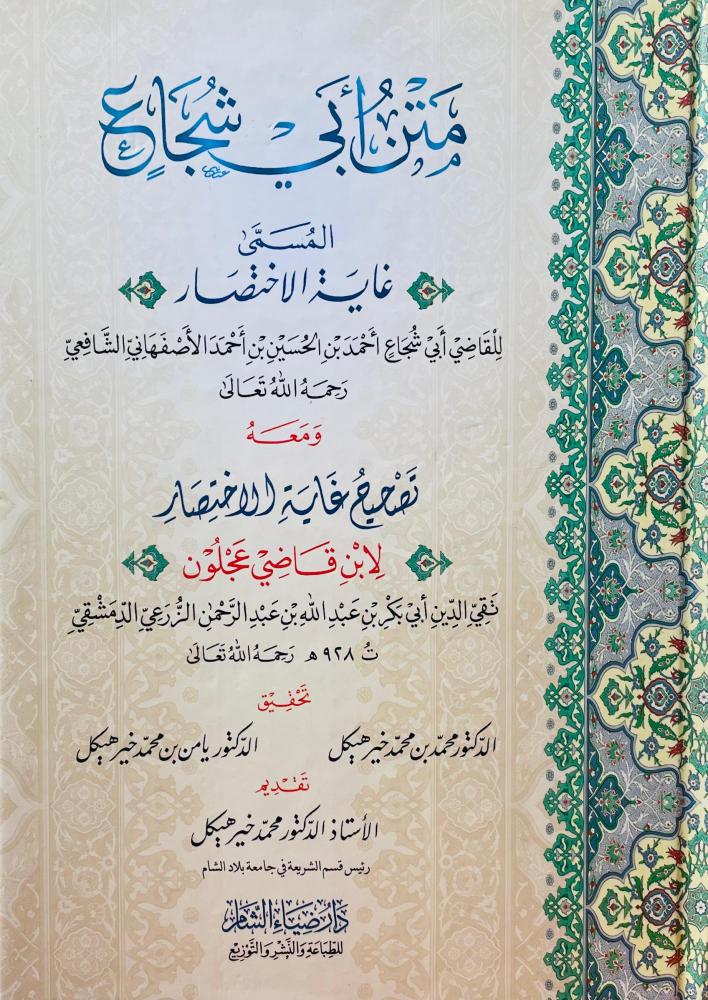 مَتْنُ أَبِي شُجَاعٍ
المُسَمَّى
غاية الاختصار
لِلْقَاضِيْ أَبِيْ شُجَاعٍ أَحْمَدَ بْنِ الحُسَيْنِ بْنِ أَحْمَدَ الأَصْفَهَانِيِّ الشَّافِعِيِّ
رَحِمَهُ اللهُ تَعَالَى
وَمَعَهُ
تَصْحِيحُ غَايَةِ الاخْتِصَارِ
لِابْنِ قَاضِيْ عَجْلُوْن
تَقِيِّ الدِّينِ أَبِيْ بَكْرِ بْنِ عَبْدِ اللهِ بْنِ عَبْدِ الرَّحْمٰنِ الزُّرَعِيِّ الدِّمَشْقِيِّ
تُ ٩٢٨ هـ رَحِمَهُ اللهُ تَعَالَى
تَحْقِيْق
الدكتور محمد بن محمد خير هيكل
الدكتور يامن بن محمد خير هيكل
تَقْدِيم
الأستاذ الدكتور محمد خير هيكل
رئيس قسم الشريعة في جامعة بلاد الشام
دَارُ ضِيَاءِ الشَّام
للطِّبَاعَةِ وَالنَّشْرِ وَالتَّوْزِيْع